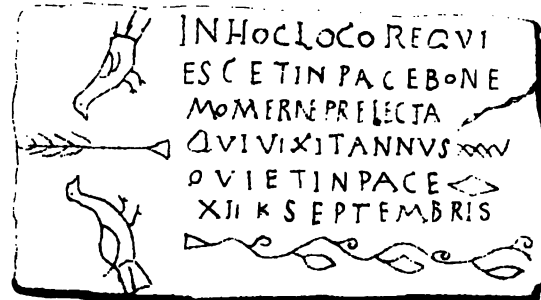 INHOCLOCOREQVI
ESCETINPACEBONE
MOMERNEPRELECTA
QVIVIXITANNVS
OVIETINPACE
XII K SEPTEMBRIS